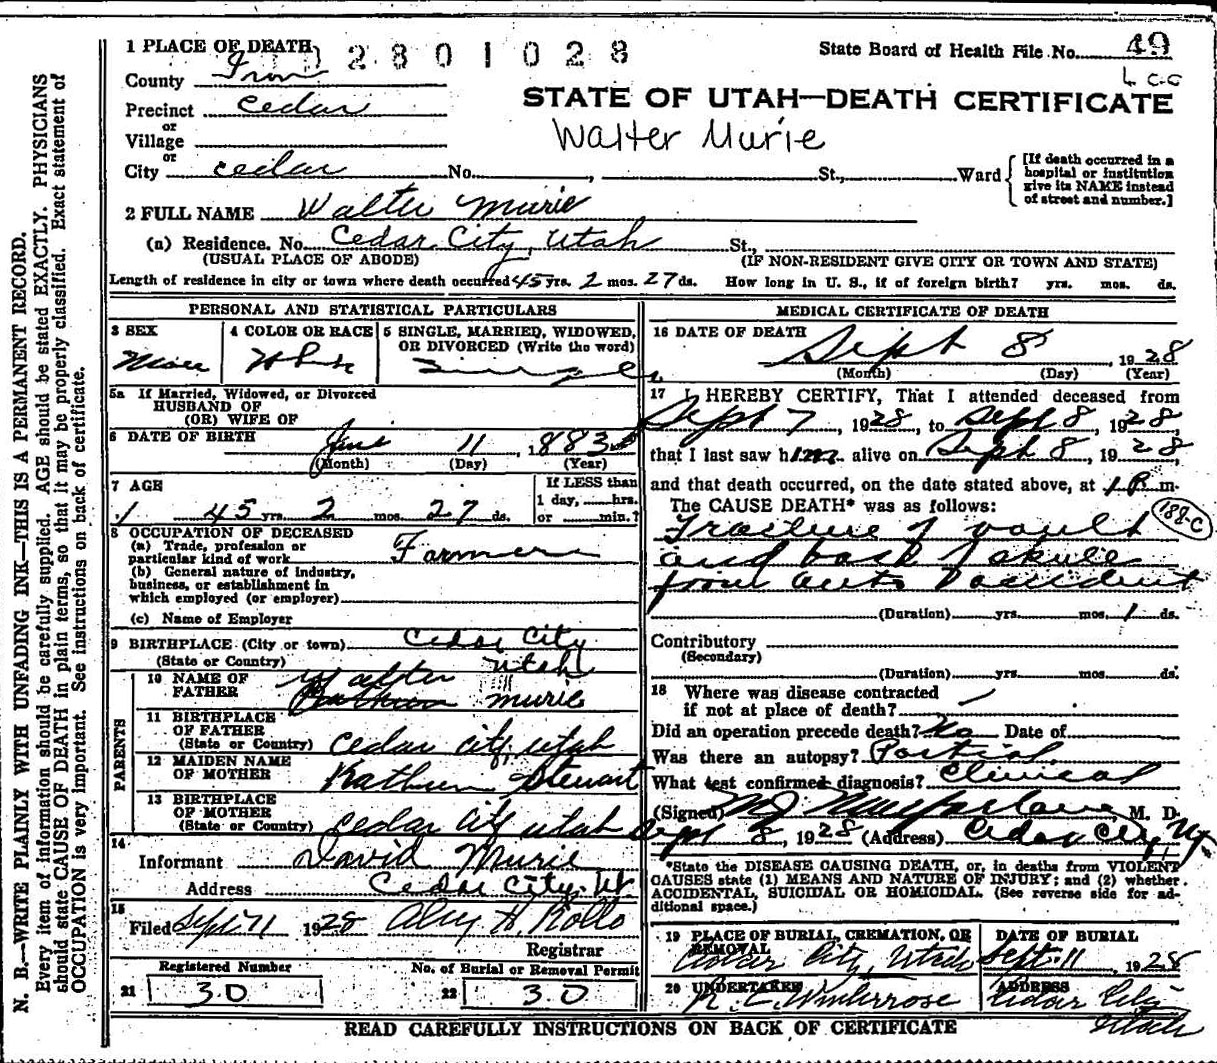 N. B.—WRITE PLAINLY WITH UNFADING INK—THIS IS A PERMANENT RECORD.
Every item of information should be carefully supplied. AGE should be stated EXACTLY. PHYSICIANS
should state CAUSE OF DEATH in plain terms, so that it may be properly classified. Exact statement of
OCCUPATION is very important. See instructions on back of certificate.
1 PLACE OF DEATH 2801028 State Board of Health File No. 49
County Iron
Precinct Cedar
STATE OF UTAH—DEATH CERTIFICATE
or
Village
Walter Murie
or
City Cedar No. , St., Ward
[If death occurred in a
hospital or institution
give its NAME instead
of street and number.]
2 FULL NAME Walter Murie
(a) Residence. No. Cedar City, Utah St.,
(USUAL PLACE OF ABODE) (IF NON-RESIDENT GIVE CITY OR TOWN AND STATE)
Length of residence in city or town where death occurred 45 yrs. 2 mos. 27 ds. How long in U. S., if of foreign birth? yrs. mos. ds.
PERSONAL AND STATISTICAL PARTICULARS
3 SEX 4 COLOR OR RACE 5 SINGLE, MARRIED, WIDOWED,
OR DIVORCED (Write the word)
White Single
5a If Married, Widowed, or Divorced
HUSBAND OF
(OR) WIFE OF
6 DATE OF BIRTH June 11, 1883
(Month) (Day) (Year)
7 AGE
If LESS than
1 day, hrs.
or min.?
45 yrs. 2 mos. 27 ds.
8 OCCUPATION OF DECEASED
(a) Trade, profession or
particular kind of work Farmer
(b) General nature of industry,
business, or establishment in
which employed (or employer)
(c) Name of Employer
9 BIRTHPLACE (City or town) Cedar City
(State or Country) Utah
PARENTS
10 NAME OF
FATHER
Walter
Murie
11 BIRTHPLACE
OF FATHER
(State or Country) Cedar City, Utah
12 MAIDEN NAME
OF MOTHER Stewart
13 BIRTHPLACE
OF MOTHER
(State or Country) Cedar City Utah
14
Informant David Murie
Address Cedar City, Ut
15
Filed Sept 11 1928 H. Rollo
Registrar
Registered Number No. of Burial or Removal Permit
21 30 22 30
MEDICAL CERTIFICATE OF DEATH
16 DATE OF DEATH Sept 8, 1928
(Month) (Day) (Year)
17 I HEREBY CERTIFY, That I attended deceased from
Sept 7, 1928, to Sept 8, 1928,
that I last saw him alive on Sept 8, 1928,
and that death occurred, on the date stated above, at 1 P m.
The CAUSE DEATH* was as follows:
188-C
Fracture of vault
and base of skull
from auto accident
(Duration) yrs. mos. 1 ds.
Contributory
(Secondary)
(Duration) yrs. mos. ds.
18 Where was disease contracted
if not at place of death?
Did an operation precede death? No Date of
Was there an autopsy? Partial
What test confirmed diagnosis? Clinical
(Signed) Macfarlane, M. D.
Sept 8, 1928 (Address) Cedar City, Ut.
*State the DISEASE CAUSING DEATH, or, in deaths from VIOLENT
CAUSES state (1) MEANS AND NATURE OF INJURY; and (2) whether
ACCIDENTAL, SUICIDAL OR HOMICIDAL. (See reverse side for ad-
ditional space.)
19 PLACE OF BURIAL, CREMATION, OR
REMOVAL
DATE OF BURIAL
Cedar City, Utah Sept. 11, 1928
20 UNDERTAKER ADDRESS
Winterrose Cedar City
Utah
READ CAREFULLY INSTRUCTIONS ON BACK OF CERTIFICATE